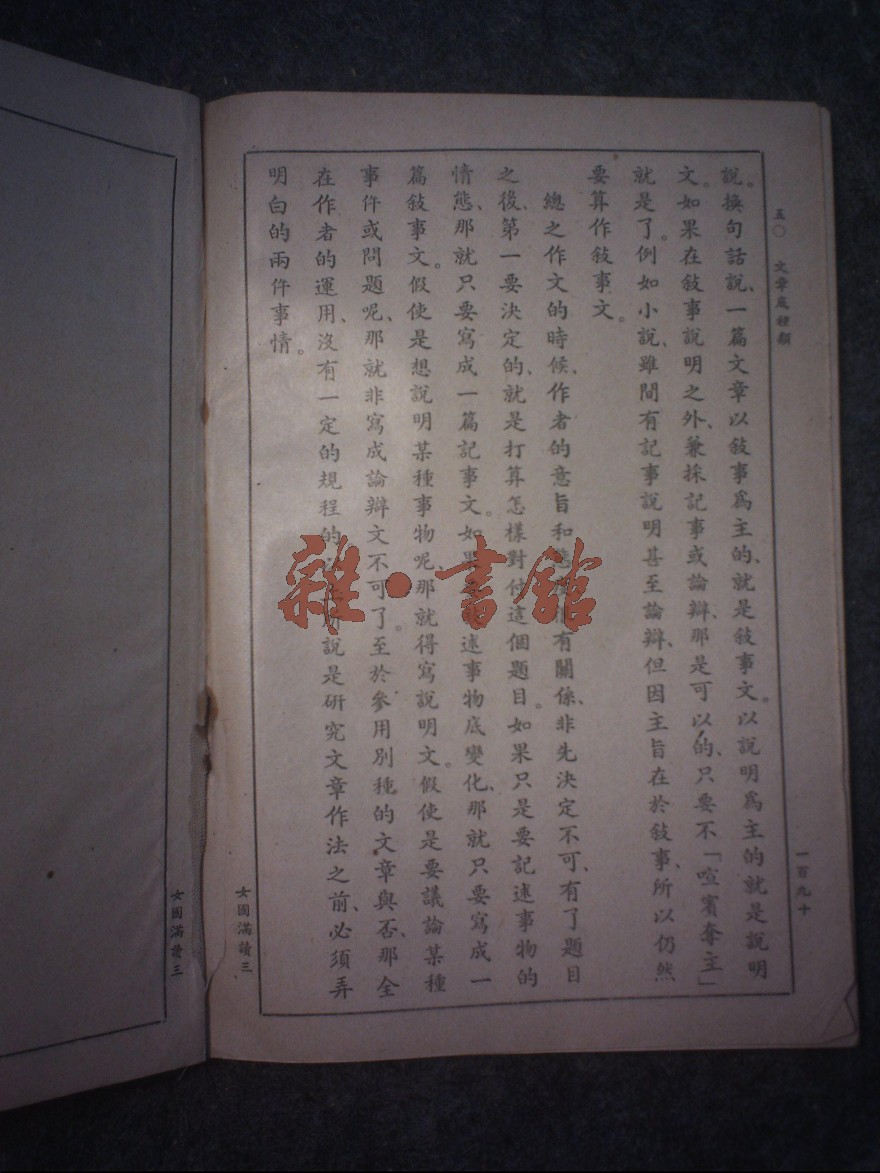 五〇 文章底種類
一百九十
說。換句話說、一篇文章以敍事爲主的、就是敍事文。以說明爲主的就是說明
文。如果在敍事說明之外、兼採記事或論辯、那是可以的、只要不「喧賓奪主」
就是了。例如小說、雖間有記事說明甚至論辯、但因主旨在於敍事、所以仍然
要算作敍事文。
總之作文的時候、作者的意旨和 有關係、非先決定不可、有了題目
之後、第一要決定的、就是打算怎樣對付這個題目。如果只是要記述事物的
情態、那就只要寫成一篇記事文。如果 述事物底變化、那就只要寫成一
篇敍事文。假使是想說明某種事物呢、那就得寫說明文。假使是要議論某種
事件或問題呢、那就非寫成論辯文不可了。至於參用別種的文章與否、那全
在作者的運用、沒有一定的規程的 說是研究文章作法之前、必須弄
明白的兩件事情。
女國滿讀三
女國滿讀三
雜·書館